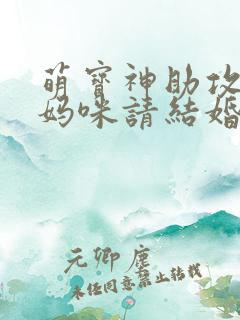 萌寶神助攻
媽咪請結婚
元卿塵
未經同意禁止轉載